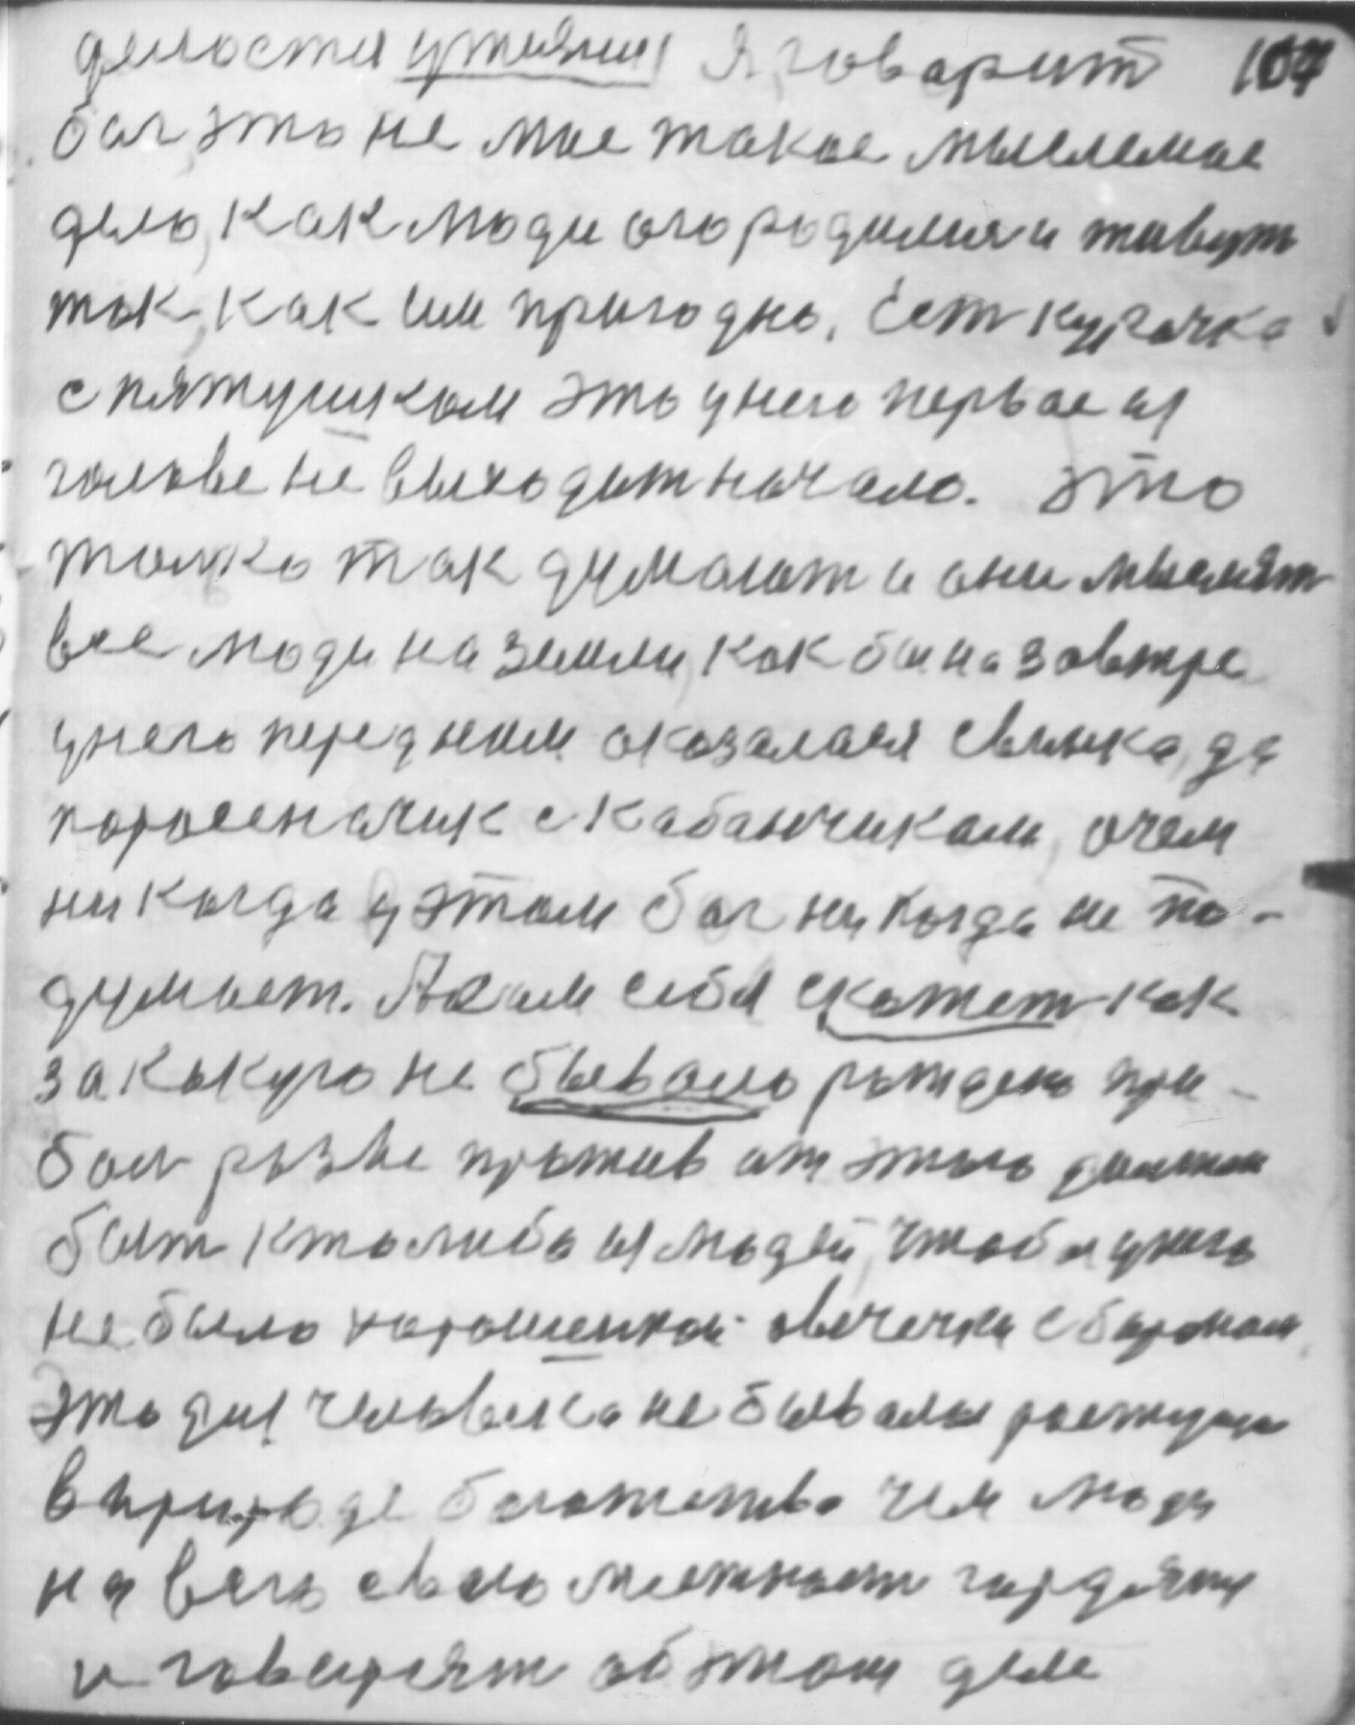 делости Я, говарит 107
бог, это не мое такое мыслемое
дело, как люди огородилися и живут
так, как им пригодно. Ест курачка
с пятушком это у него первае из
голове не выходит начало. Это
толко так думают и они мыслят
все люди на земли, как бы на завтре
у него перед ним оказалася свинка, да
поросеначик с кабанчиком, очем
никогда у этом бог никогда не по-
думает. А сам себя скажет как
за какуго не бывало рождено при-
бол разве против от этого должон
быт кто либо из людей, чтобы у него
не было хорошенкой овечечки с бараном,
это для человека не бывалы растущие
в природе богатство чем люди
на всего свою месткност гордятся
и говарят об этом деле